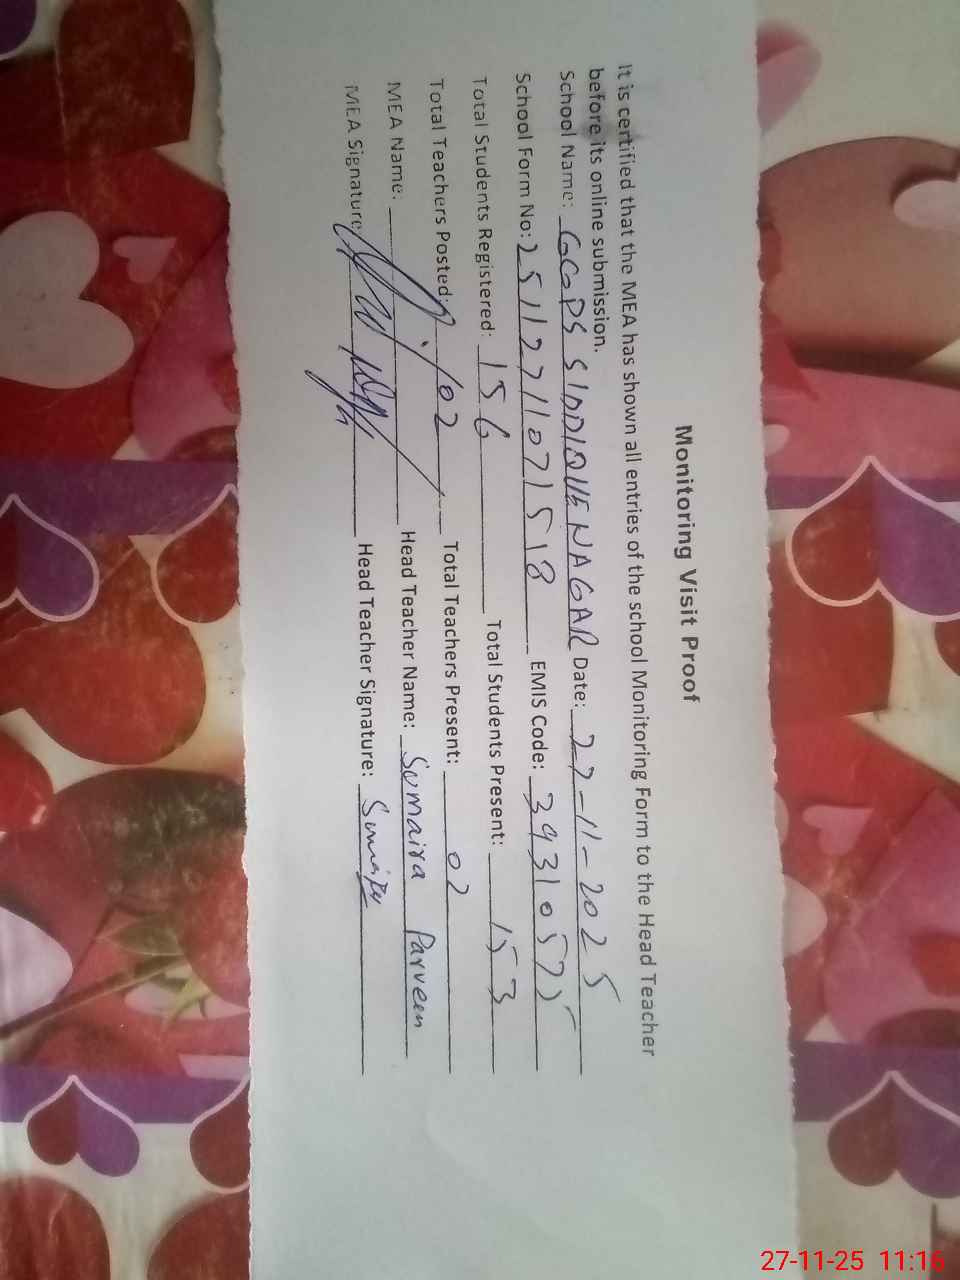 Monitoring Visit Proof
It is certified that the MEA has shown all entries of the school Monitoring Form to the Head Teacher
before its online submission.
School Name: GGPS SIDDIQUE NAGAR Date: 27-11-2025
School Form No: EMIS Code:
Total Students Registered: 156 Total Students Present: 153
Total Teachers Posted: 02 Total Teachers Present: 02
MEA Name: Head Teacher Name: Sumaira Parveen
MEA Signature: Head Teacher Signature: Sumaira
27-11-25 11:16